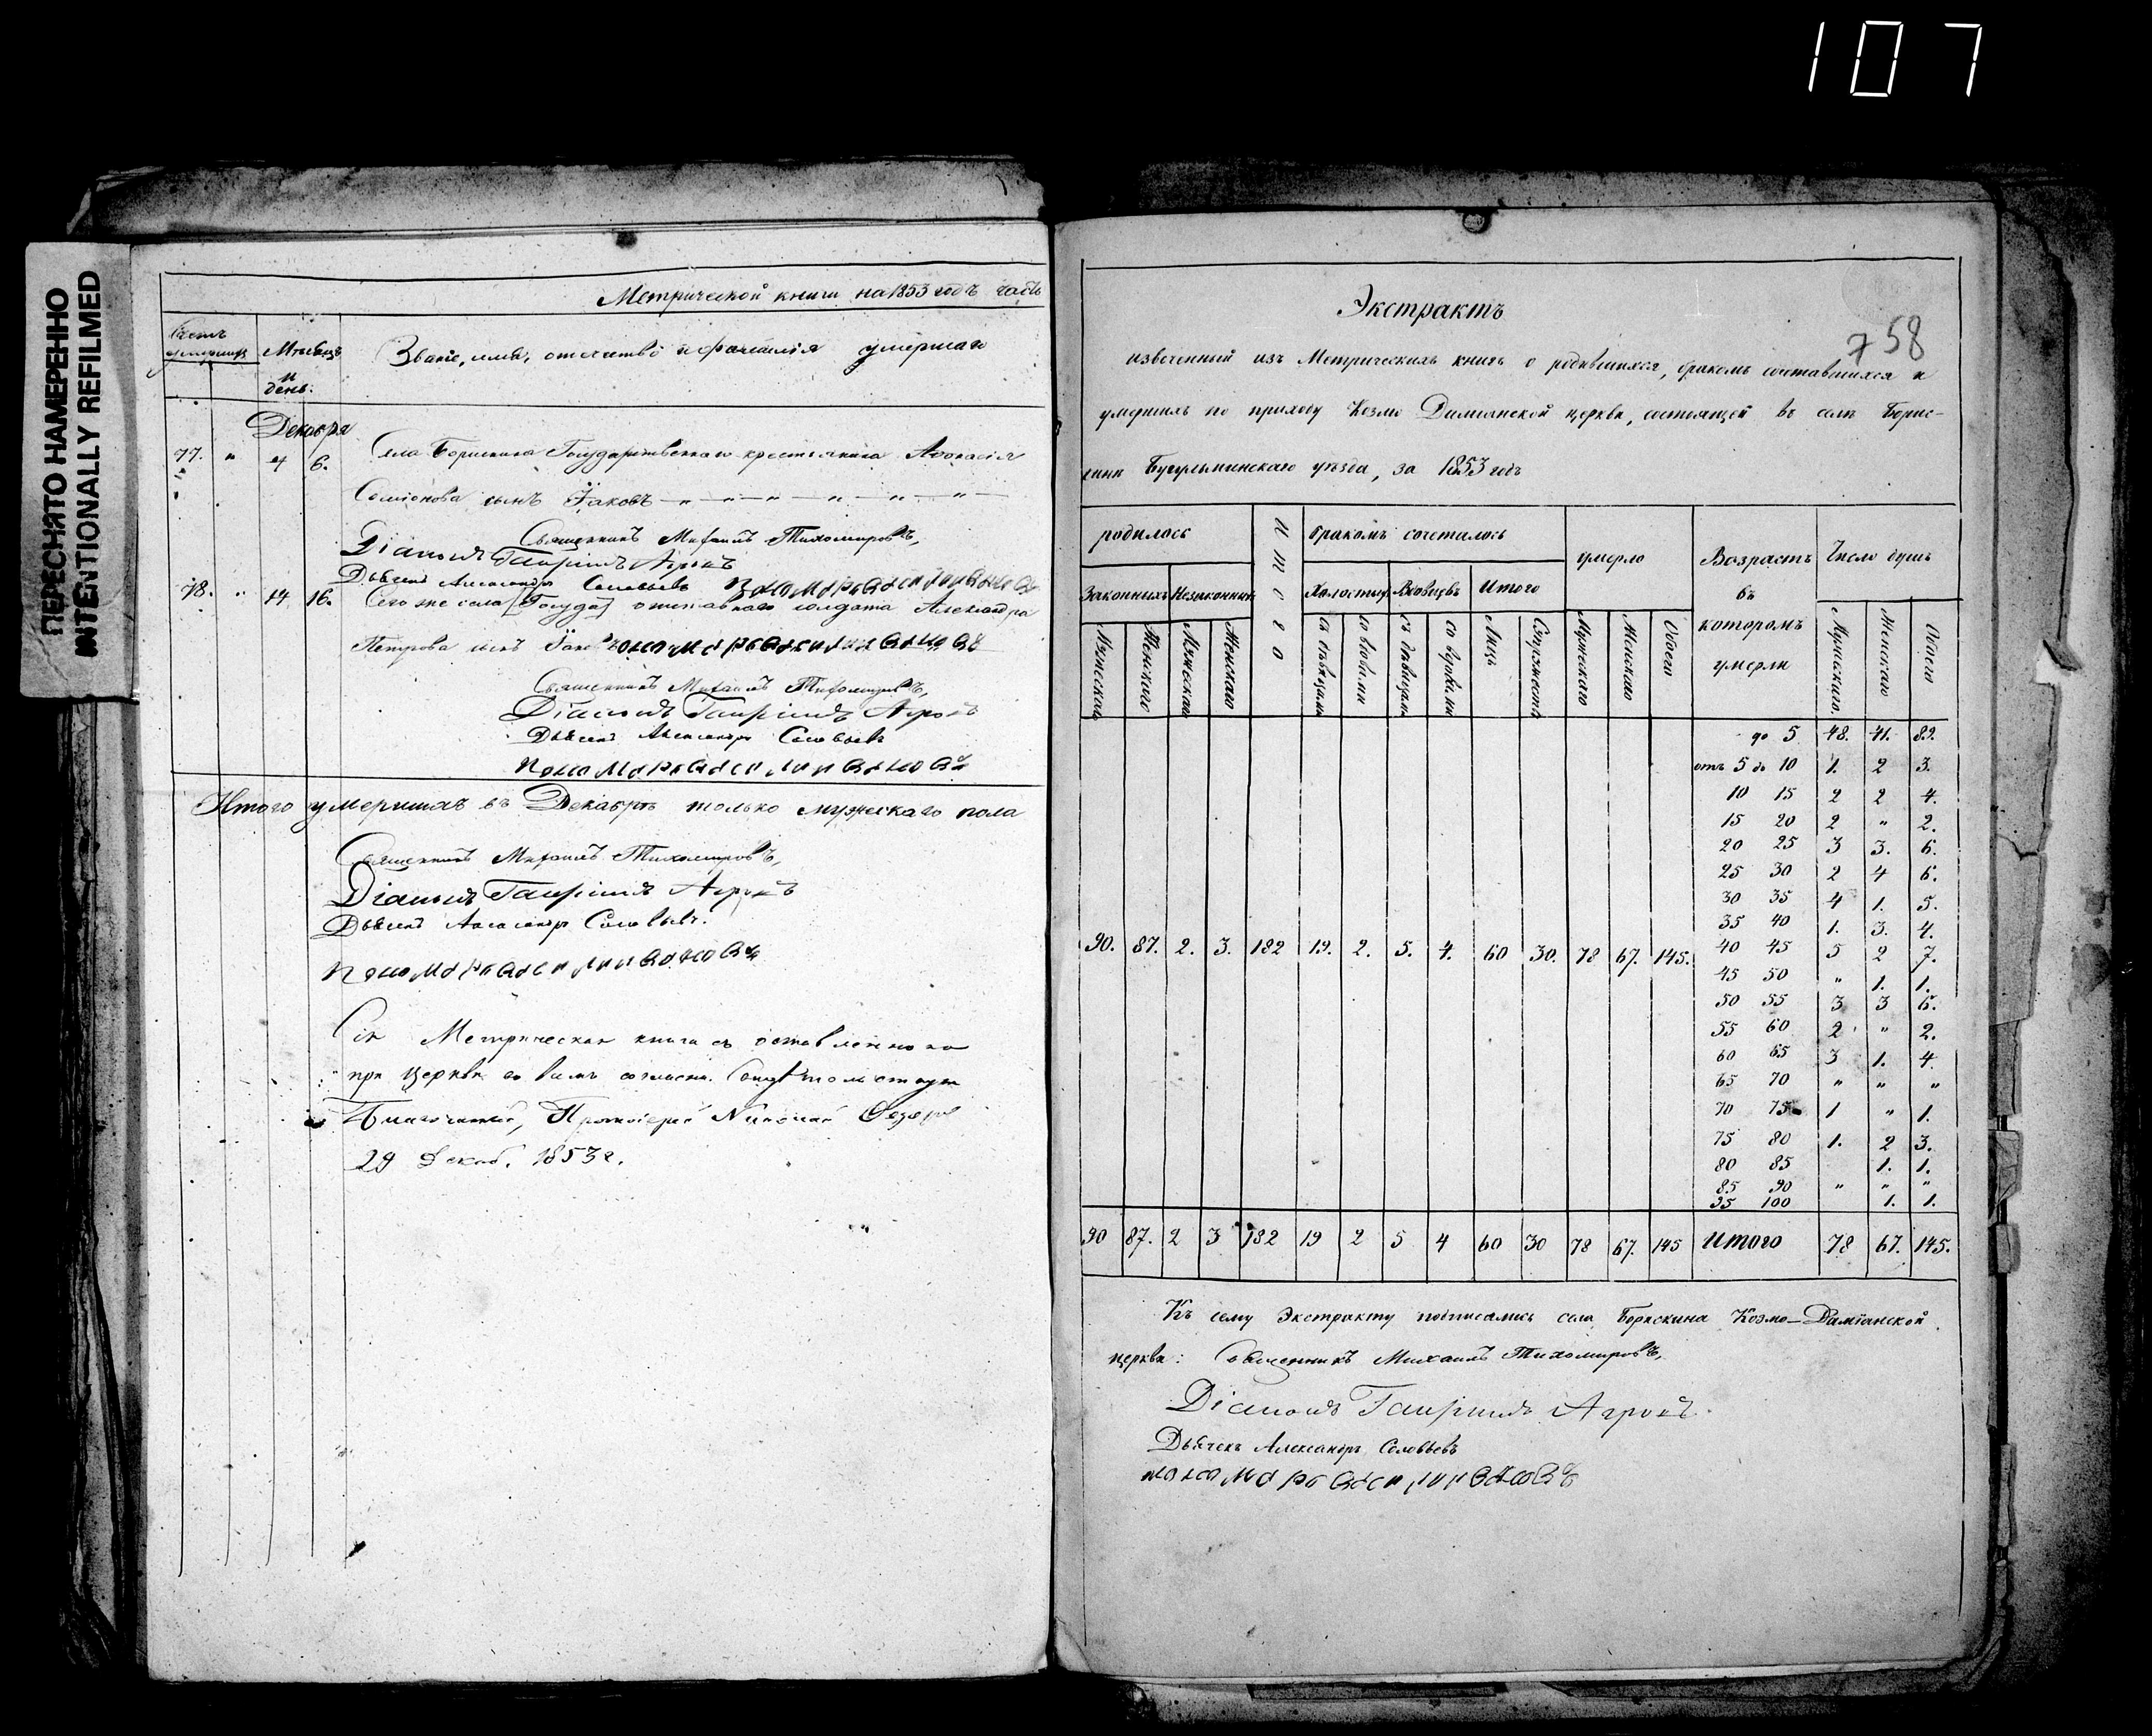 107
ПЕРЕСНЯТО НАМЕРЕННО
INTENTIONALLY REFILMED
Метрической книги на 1853 годъ часть
Счетъ умершихъ
Мѣсяцъ и день.
Званіе, имя, отечество и фамилія умершаго
Декабря
77. " 4 6. Села Борискина Государственнаго крестьянина Аѳонасія
Семіонова сынъ Іаковъ — " — " — " — " — " — " —
Священникъ Михаилъ Тихомировъ,
Діаконъ Гавріилъ Агровъ
Дьячекъ Александръ Соловьевъ
78. " 14 16. Того же села [Госуда] отставнаго солдата Александра
Петрова сынъ
Священникъ Михаилъ Тихомировъ,
Діаконъ Гавріилъ Агровъ
Дьячекъ Александръ Соловьевъ
Итого умершихъ въ Декабрѣ только мужескаго пола
Священникъ Михаилъ Тихомировъ,
Діаконъ Гавріилъ Агровъ
Дьячекъ Александръ Соловьевъ.
Сія Метрическая книга съ оставленною
при Церкви во всемъ согласна.
Благочинный, Протоіерей Николай
29 Декаб. 1853 г.
758
Экстрактъ
извеченный изъ Метрическихъ книгъ о родившихся, бракомъ сочетавшихся и
умершихъ по приходу Козмо Даміанской церкви, состоящей въ селѣ Борис-
кинѣ Бугульминскаго уѣзда, за 1853 годъ
родилось
Итого
бракомъ сочеталось
умерло
Возрастъ въ которомъ умерли
Число душъ
Законныхъ Незаконныхъ Холостыхъ Вдовцевъ Итого
Мужескаго Женскаго Мужескаго Женскаго съ дѣвицами со вдовами съ дѣвицами со вдовами Лицъ Супружествъ Мужескаго Женскаго Обоего Мужескаго Женскаго Обоего
до 5 48. 41. 89.
отъ 5 до 10 1. 2 3.
10 15 2 2 4.
15 20 2 " 2.
20 25 3 3. 6.
25 30 2 4 6.
30 35 4 1. 5.
35 40 1. 3. 4.
90. 87. 2. 3. 182 19. 2. 5. 4. 60 30. 78 67. 145. 40 45 5 2 7.
45 50 " 1. 1.
50 55 3 3 6.
55 60 2 " 2.
60 65 3 1. 4.
65 70 " " "
70 75 1 " 1.
75 80 1. 2 3.
80 85 1. 1.
85 90 " " "
95 100 1. 1.
90 87. 2 3 182 19 2 5 4 60 30 78 67. 145 Итого 78 67. 145.
Къ сему Экстракту подписались села Борискина Козмо-Даміанской
церкви: Священникъ Михаилъ Тихомировъ,
Діаконъ Гавріилъ Агровъ
Дьячекъ Александръ Соловьевъ